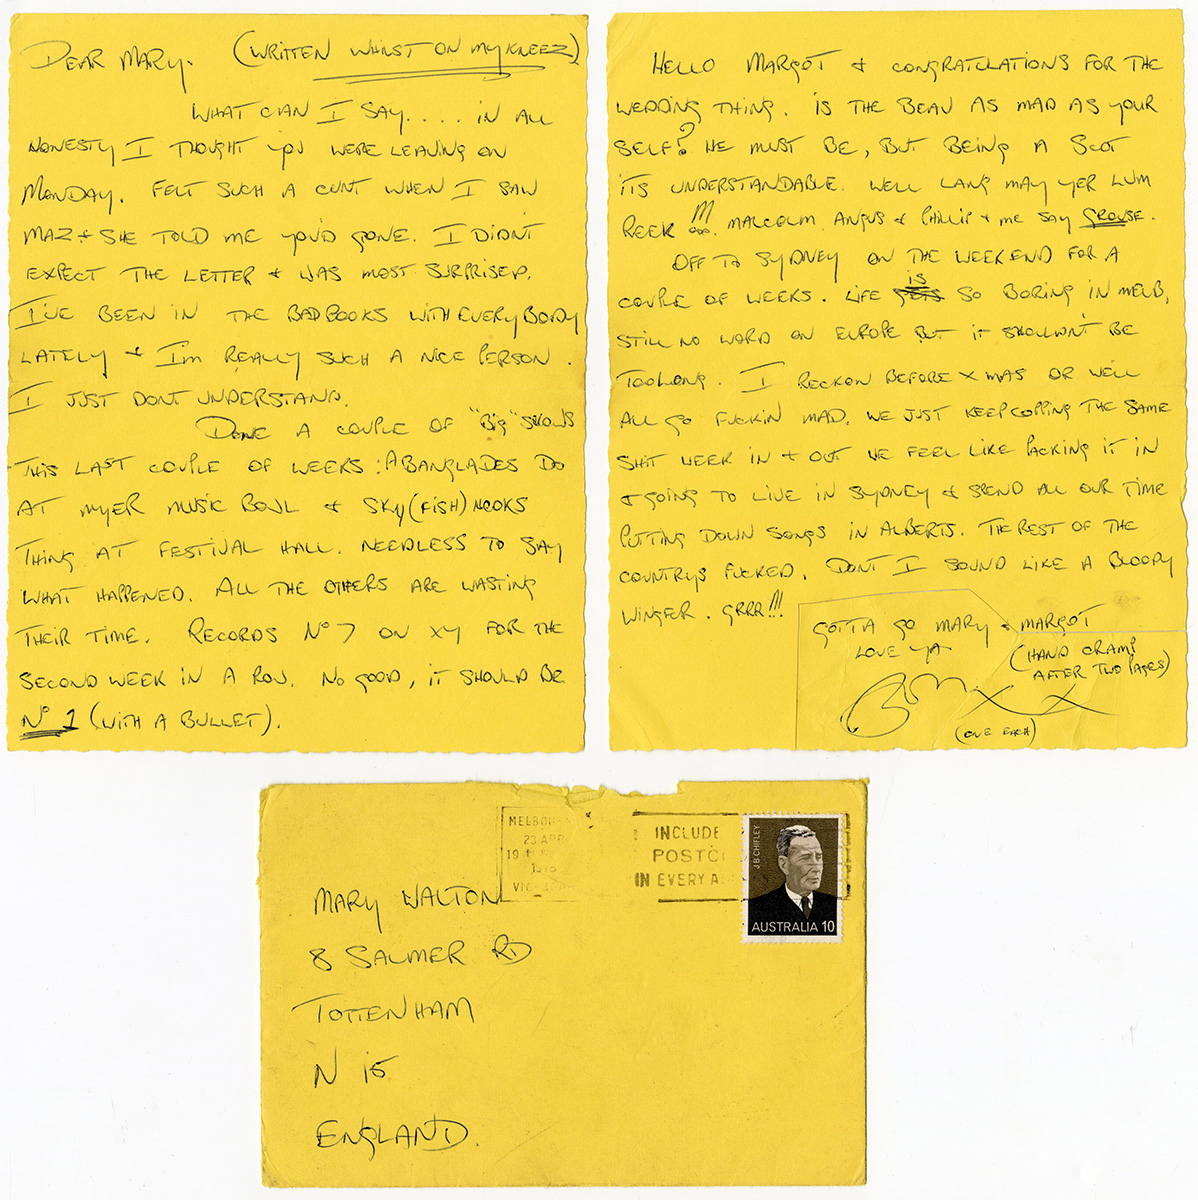 DEAR MARY. (WRITTEN WHILST ON MY KNEEZ)
WHAT CAN I SAY..... IN ALL
HONESTY I THOUGHT YOU WERE LEAVING ON
MONDAY. FELT SUCH A CUNT WHEN I SAW
MAZ & SHE TOLD ME YOU'D GONE. I DIDN'T
EXPECT THE LETTER & WAS MOST SURPRISED.
I'VE BEEN IN THE BAD BOOKS WITH EVERYBODY
LATELY & I'm REALLY SUCH A NICE PERSON.
I JUST DONT UNDERSTAND.
DONE A COUPLE OF "BIG" SHOWS
THIS LAST COUPLE OF WEEKS : A BANGLADES DO
AT MYER MUSIC BOWL & SKY(FISH)HOOKS
THING AT FESTIVAL HALL. NEEDLESS TO SAY
WHAT HAPPENED. ALL THE OTHERS ARE WASTING
THEIR TIME. RECORDS Nº 7 ON XY FOR THE
SECOND WEEK IN A ROW. NO GOOD, IT SHOULD BE
Nº 1 (WITH A BULLET).
HELLO MARGOT & CONGRATULATIONS FOR THE
WEDDING THING. IS THE BEAU AS MAD AS YOUR
SELF? HE MUST BE, BUT BEING A SCOT
ITS UNDERSTANDABLE. WELL LANG MAY YER LUM
REEK!!! MALCOLM, ANGUS & PHILLIP & ME SAY GROUSE.
OFF TO SYDNEY ON THE WEEKEND FOR A
COUPLE OF WEEKS. LIFE IS SO BORING IN MELB,
STILL NO WORD ON EUROPE BUT IT SHOULDN'T BE
TOO LONG. I RECKON BEFORE XMAS OR WE'LL
ALL GO FUCKIN MAD. WE JUST KEEP COPPING THE SAME
SHIT WEEK IN & OUT WE FEEL LIKE PACKING IT IN
& GOING TO LIVE IN SYDNEY & SPEND ALL OUR TIME
PUTTING DOWN SONGS IN ALBERTS. THE REST OF THE
COUNTRYS FUCKED. DONT I SOUND LIKE A BLOODY
WINGER. GRRR!!!
GOTTA GO MARY & MARGOT
LOVE YA (HAND CRAMP
AFTER TWO PAGES)
XX
(ONE EACH)
MELBOU
23 APR
19
VIC-
INCLUDE
POSTC
IN EVERY A
J B CHIFLEY
AUSTRALIA 10
MARY WALTON
8 SALMER RD
TOTTENHAM
N 15
ENGLAND.